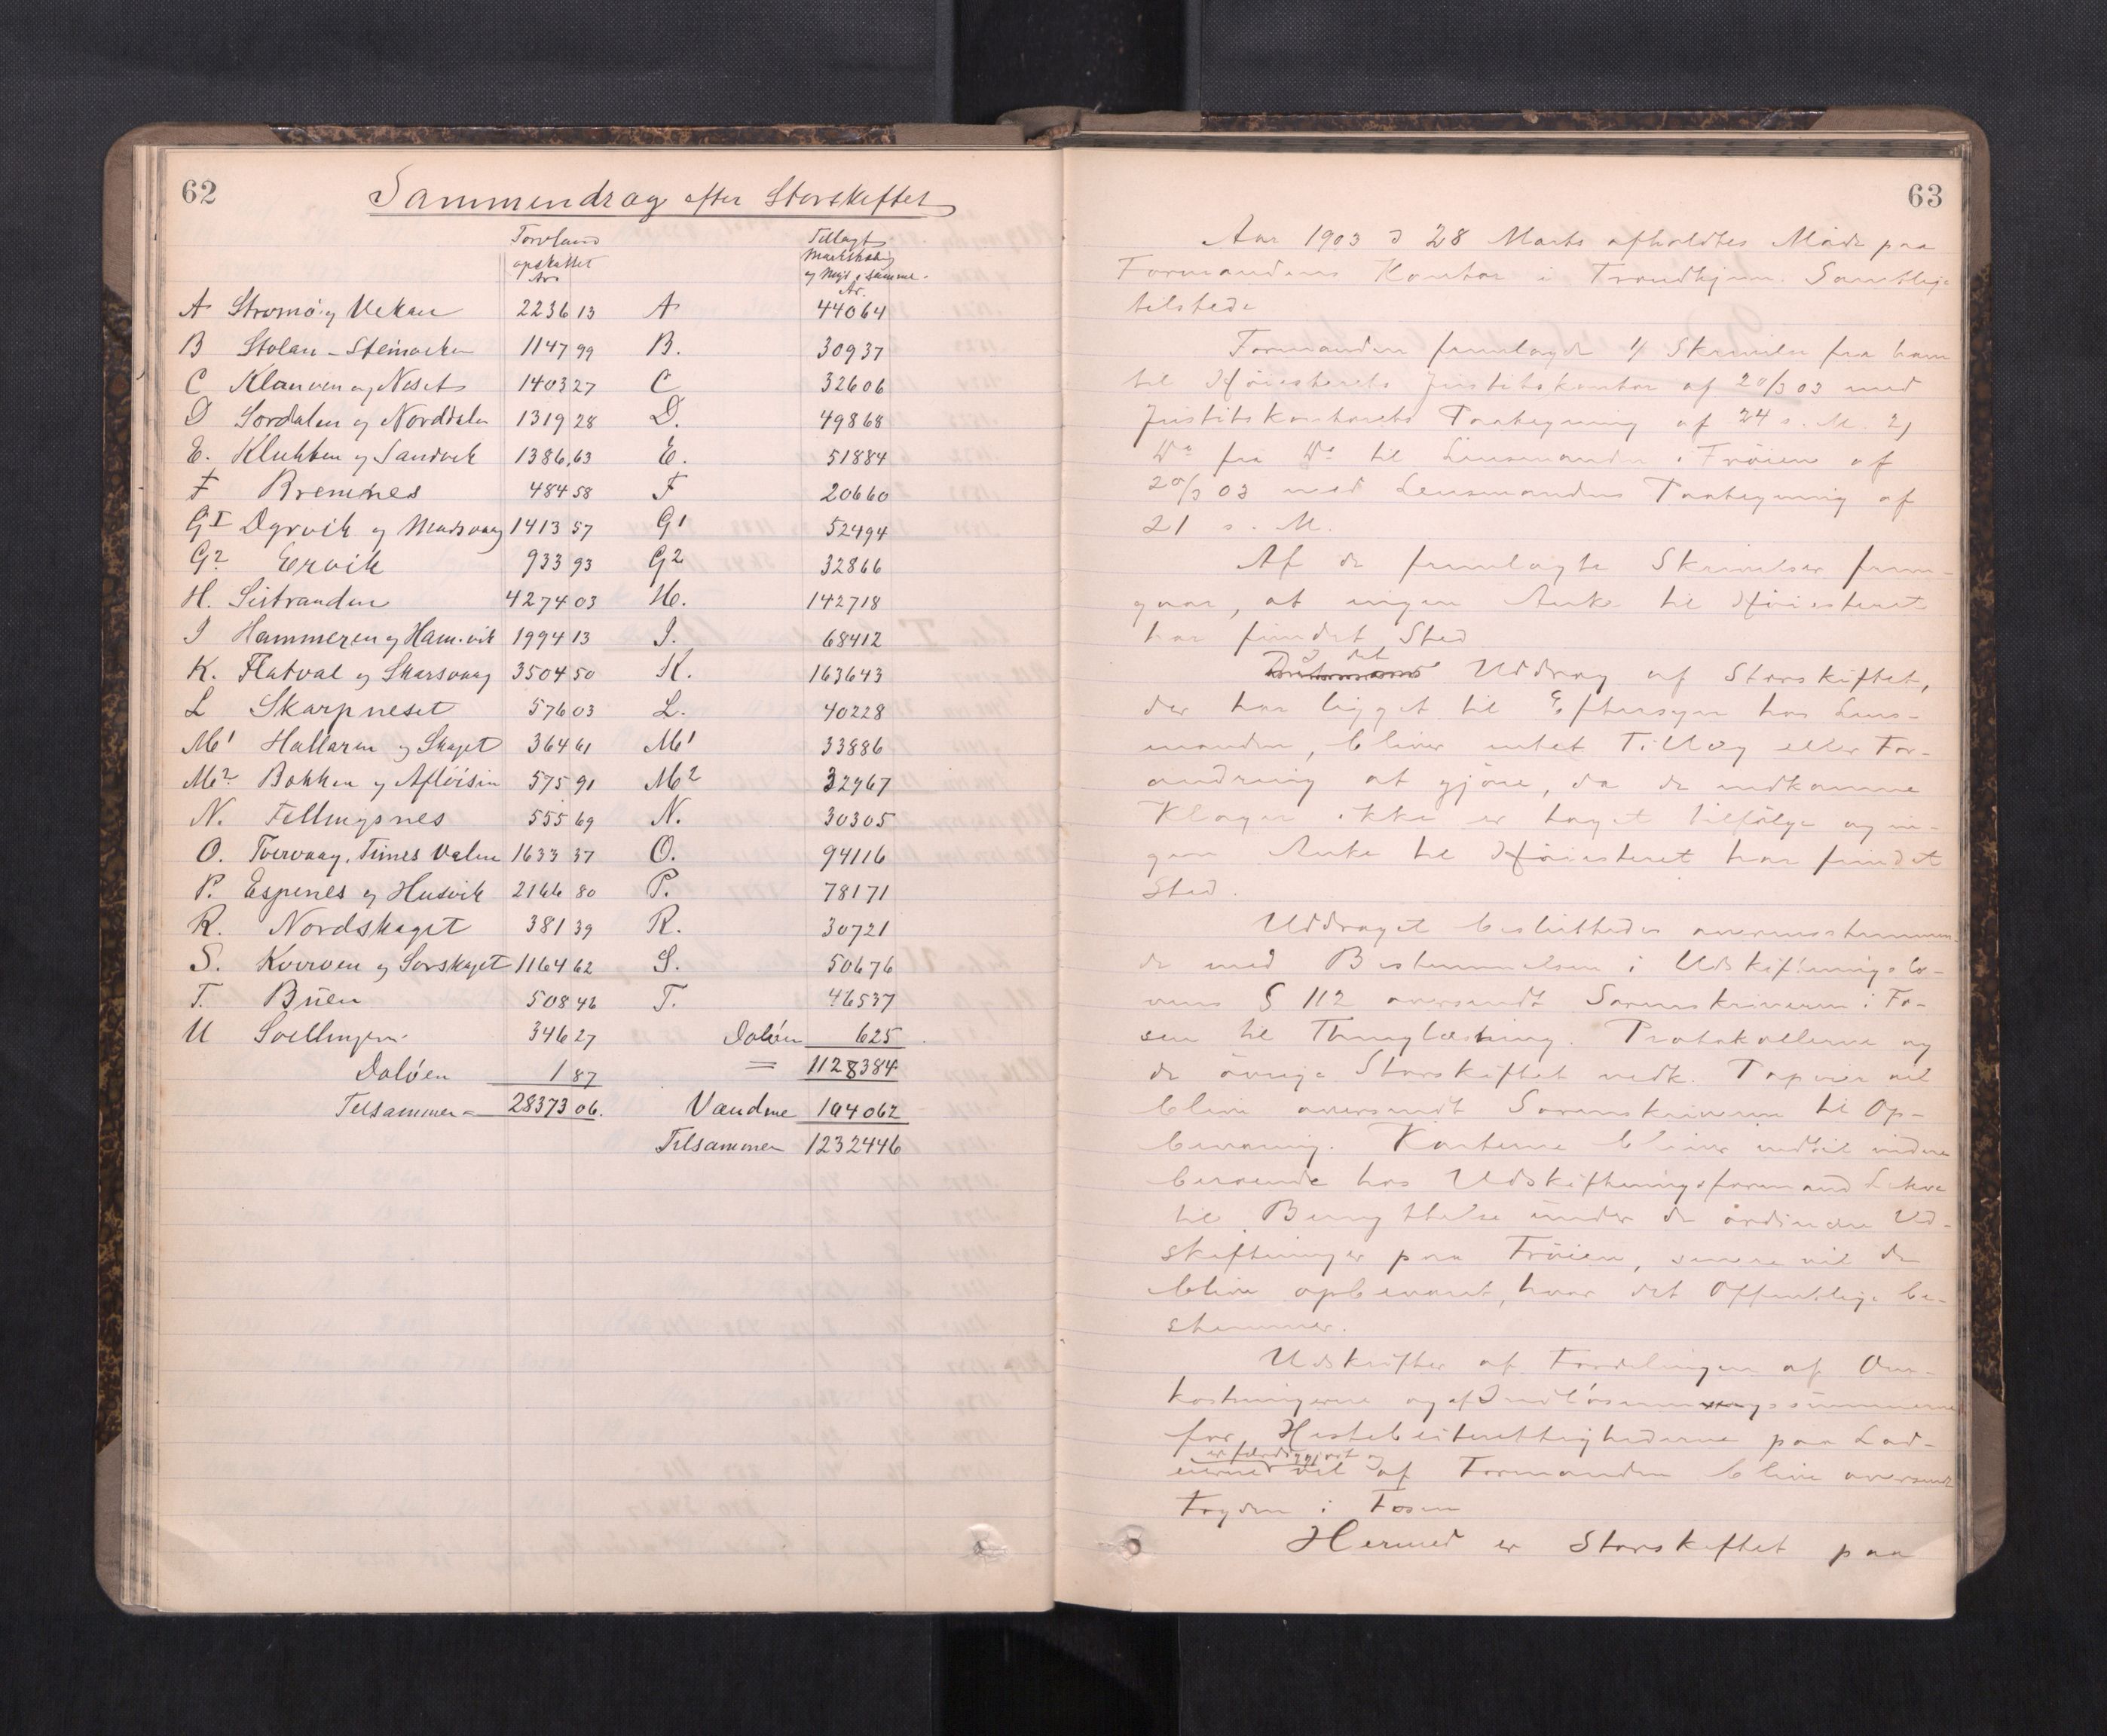 62
Sammendrag efter Storskiftet
Torvland
opskattet
Ar
Tillagt
og Myr, samme
Ar.
A Strømø og Vekan 2236 13 A 44064
B Stolan - Steinocken 1147 99 B. 30937
C Klauven og Neset 1403 27 C 32606
D Sørdalen og Norddalen 1319 28 D. 49868
E. Klubben og Sandvik 1386,63 E. 51884
F Bremnes 484 58 F 20660
G I Dyrvik og Madsvaag 1413 57 G1 52494
G2 Ervik 933 93 G2 32866
H. Sistranden 4274 03 H. 142718
I Hammeren og Ham.vik 1994 13 I. 68412
K. Flatval og Skarsvaag 3504 50 K. 163643
L Skarpneset 576 03 L. 40228
M1 Hallaren og Skaget 364 61 M1 33886
M2 Bokken og Afløisin 575 91 M2 32967
N. Fillingsnes 555 69 N. 30305
O. Tvervaag, Times Valen 1633 37 O. 94116
P. Espenes og Husvik 2166 80 P. 78171
R. Nordskaget 381 39 R. 30721
S. Kverven og Sørskaget 1164 62 S. 50676
T. Büen 508 46 T. 46537
U Soellingen 346 27 Daløen 625
Daløen 1 87 = 1128384
Tilsammen = 28373 06. Vandene 104062
Tilsammen 1232446
63
Aar 1903 d 28 Marts afholdtes Møde paa
Formandens Kontor i Trondhjem. Samtlige
tilstede
Formanden fremlagde 1/ Skrivelse fra ham
til Høiesterets Justitskontor af 20/3 03 med
Justitskontorets Paategning af 24 s. M. 2/
Do fra Do til Lensmanden i Frøien af
20/3 03 med Lensmandens Paategning af
21 s. M.
Af de fremlagte Skrivelser frem-
gaar, at ingen Anke til Høiesteret
har fundet Sted
I det Uddrag af Storskiftet,
der har ligget til Eftersyn hos Lens-
manden, bliver intet Tillæg eller For-
andring at gjøre, da de indkomne
Klager ikke er taget tilfølge og in-
gen Anke til Høiesteret har fundet
Sted.
Uddraget besluttedes overensstemmen-
de med Bestemmelsen i Udskiftningslo-
vens § 112 oversendt Sorenskriveren i Fo-
sen til Thinglæsning. Protokollerne og
de øvrige Storskiftet vedk. Papirer vil
blive oversendt Sorenskriveren til Op-
bevaring. Karterne bliver indtil videre
beroende hos Udskiftningsformand
til Benyttelse under de ordinære Ud-
skiftninger paa Frøien, senere vil de
blive opbevaret, hvor det Offentlige be-
stemmer.
Udskrifter af Fordelingen af Om-
kostningerne og af Indløsningssummerne
for Hestebeiterettighederne paa Lod-
er færdiggjort og
eierne vil af Formanden blive oversendt
Fogden i Fosen
Hermed er Storskiftet paa